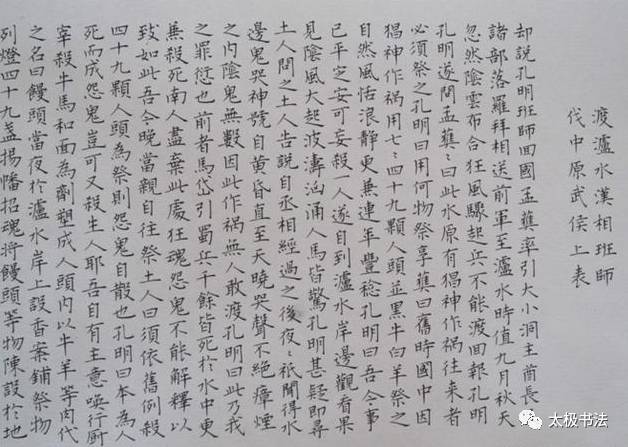 渡瀘水漢相班師
伐中原武侯上表
却説孔明班師回國孟獲率引大小洞主酋長
諸部落羅拜相送前軍至瀘水時值九月秋天
忽然陰雲布合狂風驟起兵不能渡回報孔明
孔明遂問孟獲〻曰此水原有猖神作禍往来者
必須祭之孔明曰用何物祭享獲曰舊時國中因
猖神作禍用七〻四十九顆人頭並黑牛白羊祭之
自然風恬浪静更兼連年豐稔孔明曰吾今事
已平定安可妄殺一人遂自到瀘水岸邊觀看果
見陰風大起波濤洶涌人馬皆驚孔明甚疑即尋
土人問之土人告説自丞相經過之後夜〻衹聞得水
邊鬼哭神號自黄昏直至天曉哭聲不絶瘴煙
之内陰鬼無數因此作禍無人敢渡孔明曰此乃我
之罪愆也前者馬岱引蜀兵千餘皆死於水中更
兼殺死南人盡棄此處狂魂怨鬼不能解釋以
致如此吾今晚當親自往祭土人曰須依舊例殺
四十九顆人頭為祭則怨鬼自散也孔明曰本為人
死而成怨鬼豈可又殺生人耶吾自有主意唤行厨
宰殺牛馬和面為劑塑成人頭内以牛羊等肉代
之名曰饅頭當夜於瀘水岸上設香案鋪祭物
列燈四十九盞揚幡招魂將饅頭等物陳設於地
太极书法